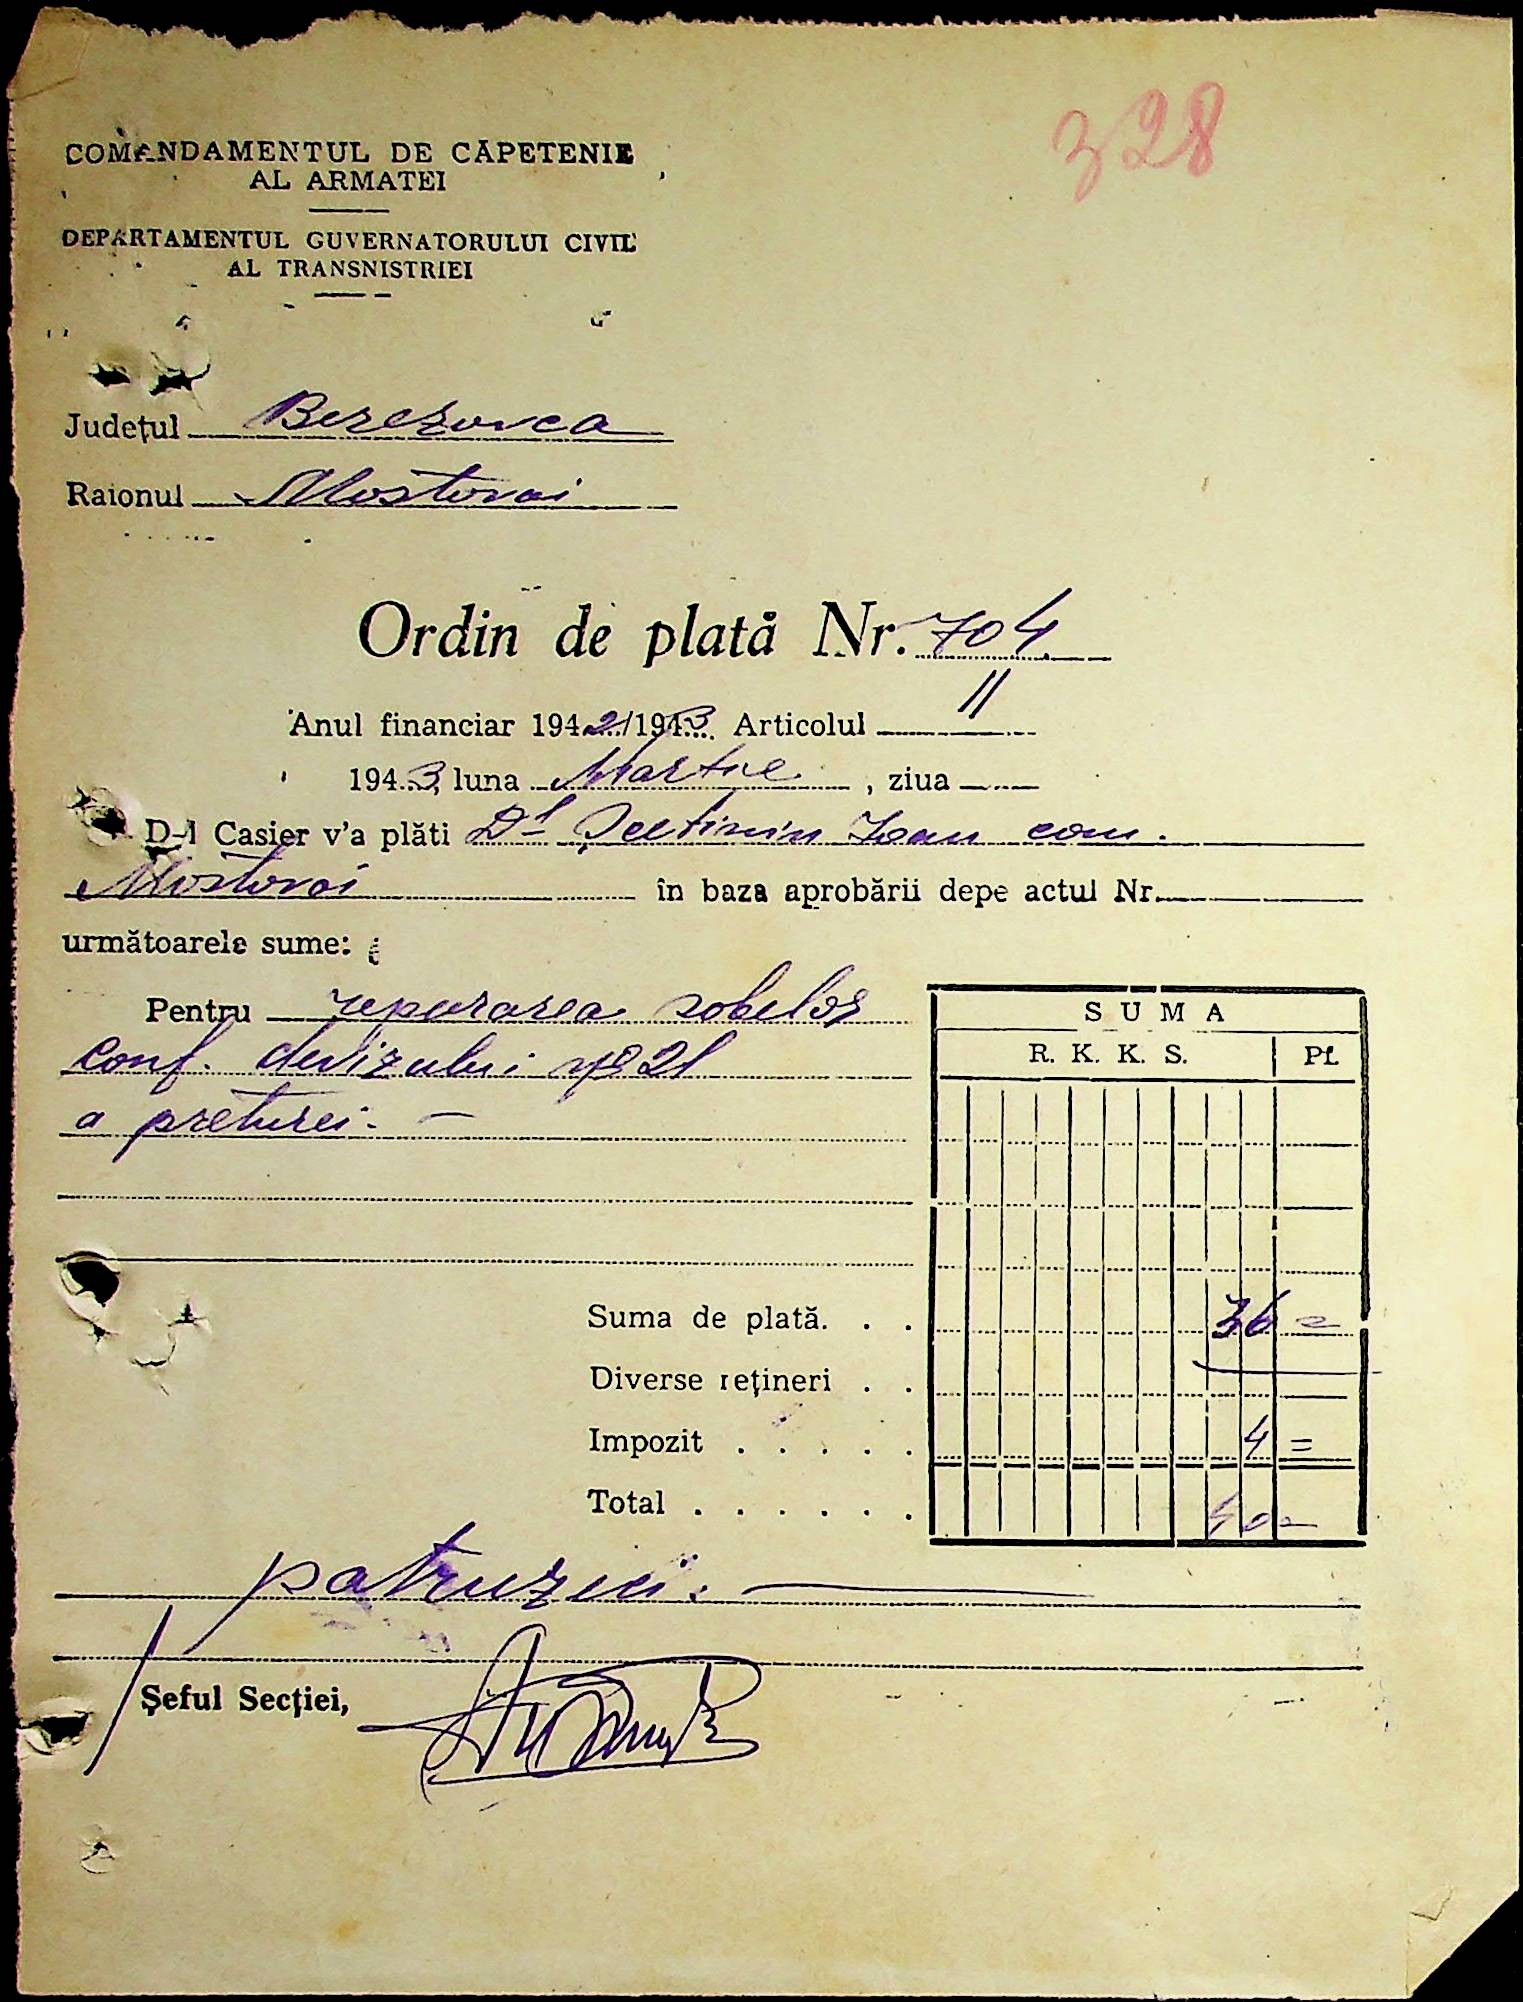 328
COMANDAMENTUL DE CĂPETENIE
AL ARMATEI
DEPARTAMENTUL GUVERNATORULUI CIVIL
AL TRANSNISTRIEI
Județul Berezovca
Raionul Mostovoi
Ordin de plată Nr. 704
Anul financiar 1942/1943 Articolul 11
1943, luna Martie, ziua
D-l Casier v'a plăti Dl Ioan com.
Mostovoi în baza aprobării depe actul Nr.
următoarele sume:
Pentru repararea sobelor
conf. devizului No 21
a preturei. —
SUMA
R. K. K. S. Pf.
Suma de plată. . . 36 =
Diverse rețineri . .
Impozit . . . . . 4 =
Total . . . . . . 40 =
patruzeci. —
Șeful Secției,